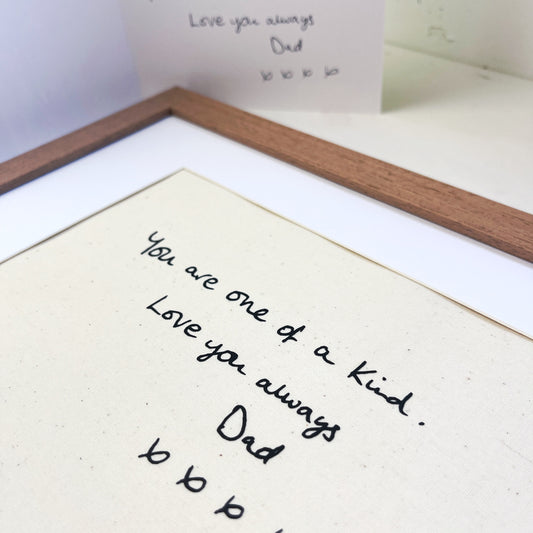 Love you always
Dad
x x x x
You are one of a kind.
Love you always
Dad
x x x